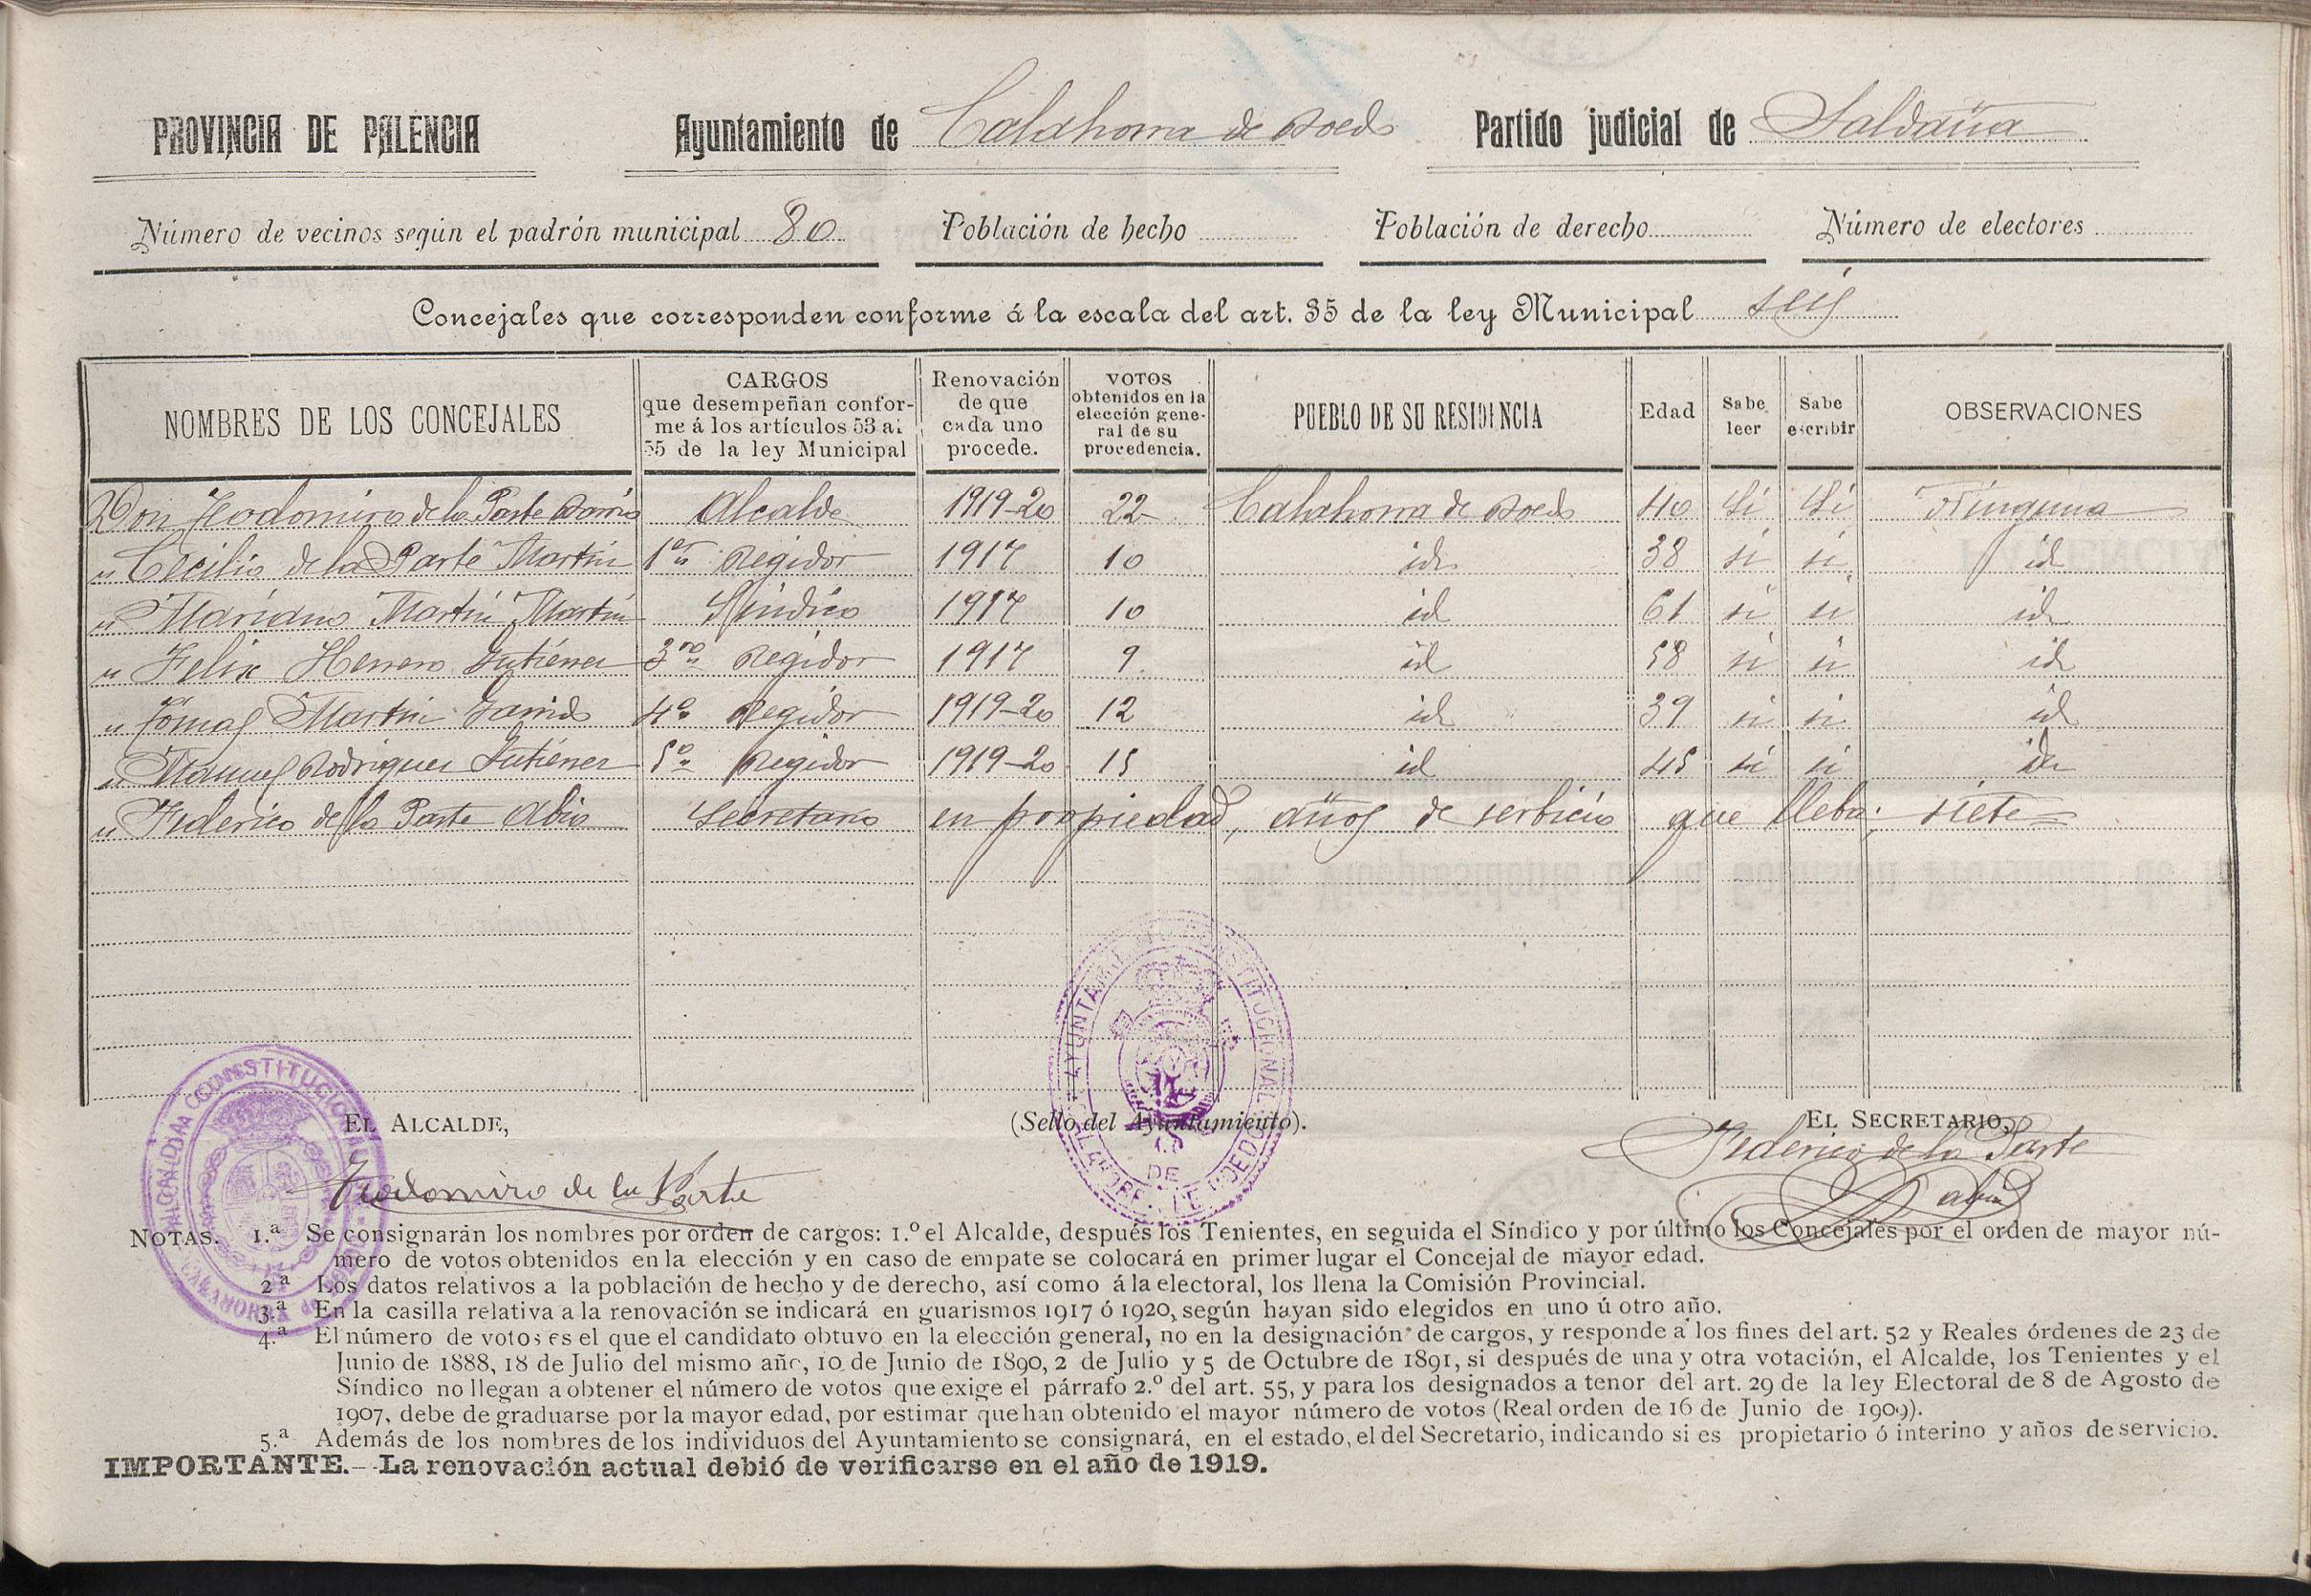 PROVINCIA DE PALENCIA Ayuntamiento de Calahorra de Boedo Partido judicial de Saldaña
Número de vecinos según el padrón municipal 80 Población de hecho Población de derecho Número de electores
Concejales que corresponden conforme á la escala del art. 35 de la ley Municipal seis
NOMBRES DE LOS CONCEJALES CARGOS que desempeñan conforme á los artículos 53 al 55 de la ley Municipal Renovación de que cada uno procede. VOTOS obtenidos en la elección general de su procedencia. PUEBLO DE SU RESIDENCIA Edad Sabe leer Sabe escribir OBSERVACIONES
Don Teodomiro de la Parte Barrio Alcalde 1919-20 22 Calahorra de Boedo 40 Si Si Ninguna
" Cecilio de la Parte Martin 1er Regidor 1917 10 id 38 si si id
" Mariano Martin Martin Sindico 1917 10 id 61 si si id
" Felix Herrero Gutierrez 3ro Regidor 1917 9 id 58 si si id
" Tomas Martin Garrido 4º Regidor 1919-20 12 id 39 si si id
" Manuel Rodriguez Gutierrez 5º Regidor 1919-20 15 id 45 si si id
" Federico de la Parte Abia Secretario en propiedad, años de serbicio que lleba; siete
EL ALCALDE, (Sello del Ayuntamiento). EL SECRETARIO,
Teodomiro de la Parte Federico de la Parte
Abia
NOTAS. 1.ª Se consignarán los nombres por orden de cargos: 1.º el Alcalde, después los Tenientes, en seguida el Síndico y por último los Concejales por el orden de mayor nú-
mero de votos obtenidos en la elección y en caso de empate se colocará en primer lugar el Concejal de mayor edad.
2.ª Los datos relativos a la población de hecho y de derecho, así como á la electoral, los llena la Comisión Provincial.
3.ª En la casilla relativa a la renovación se indicará en guarismos 1917 ó 1920, según hayan sido elegidos en uno ú otro año.
4.ª El número de votos es el que el candidato obtuvo en la elección general, no en la designación de cargos, y responde a los fines del art. 52 y Reales órdenes de 23 de
Junio de 1888, 18 de Julio del mismo año, 10 de Junio de 1890, 2 de Julio y 5 de Octubre de 1891, si después de una y otra votación, el Alcalde, los Tenientes y el
Síndico no llegan a obtener el número de votos que exige el párrafo 2.º del art. 55, y para los designados a tenor del art. 29 de la ley Electoral de 8 de Agosto de
1907, debe de graduarse por la mayor edad, por estimar que han obtenido el mayor número de votos (Real orden de 16 de Junio de 1909).
5.ª Además de los nombres de los individuos del Ayuntamiento se consignará, en el estado, el del Secretario, indicando si es propietario ó interino y años de servicio.
IMPORTANTE.--La renovación actual debió de verificarse en el año de 1919.